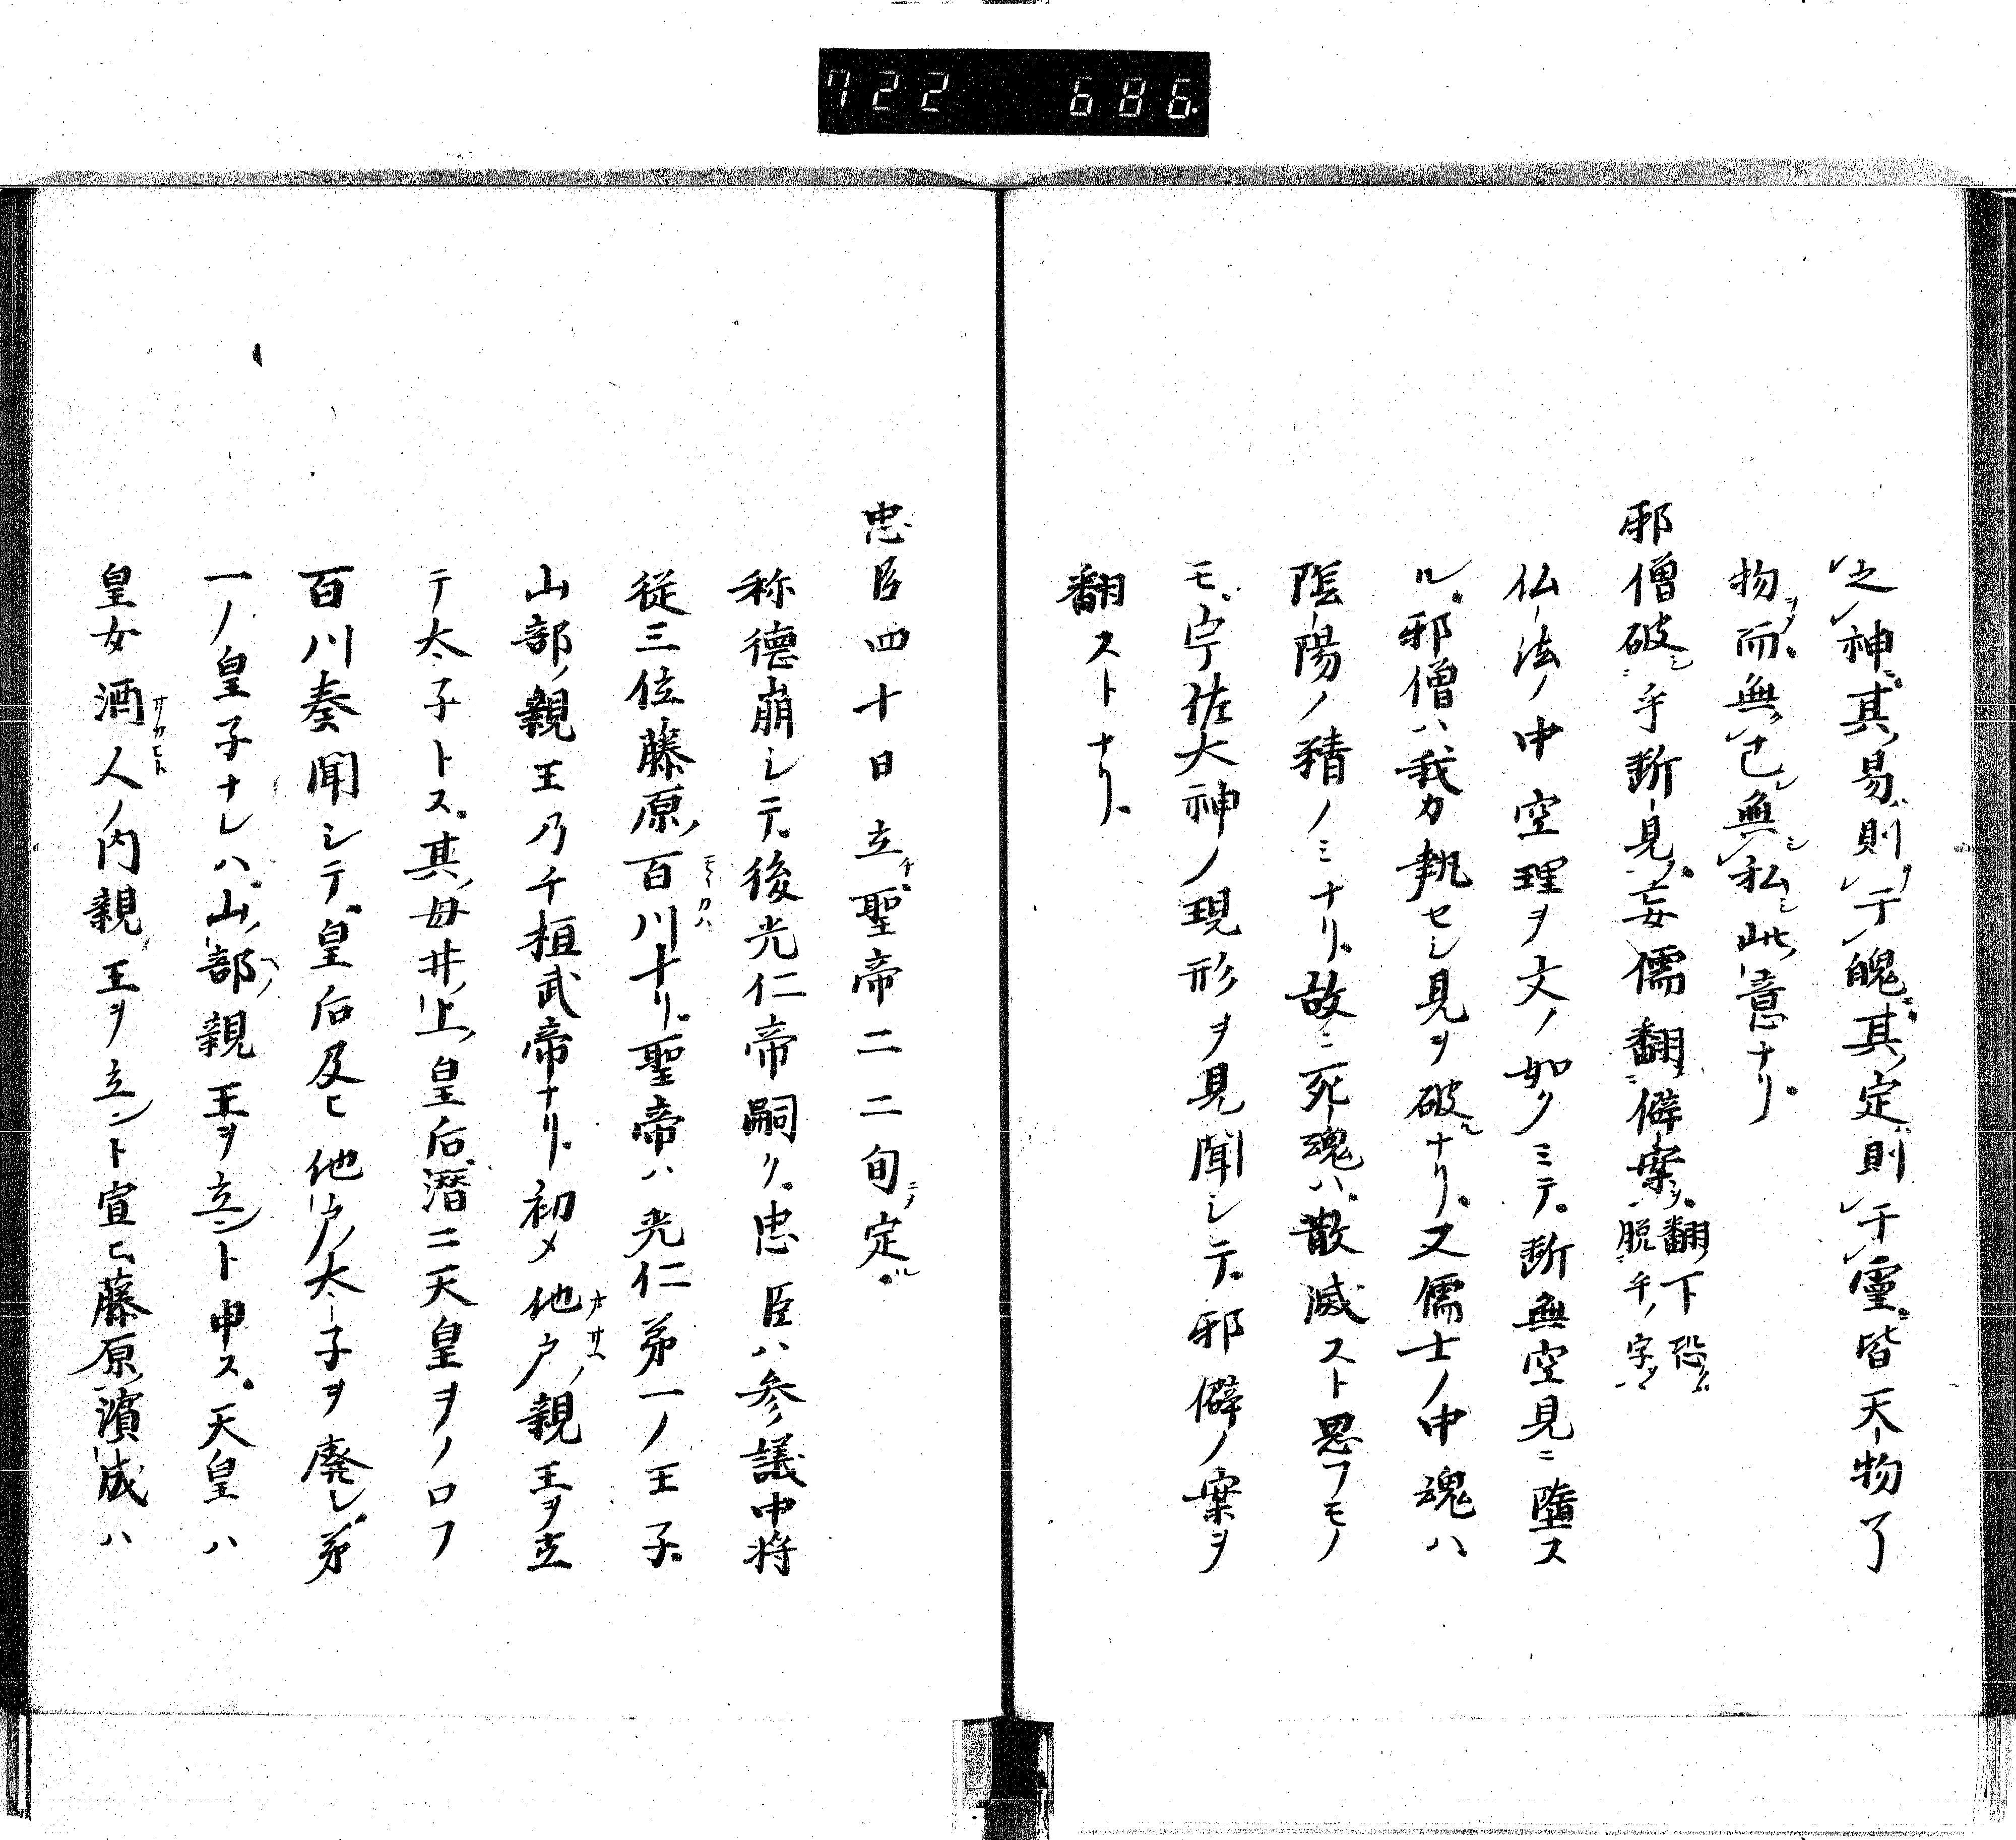 722 686.
之神其易則于魄其定則于霊皆天物了
物而無己無私此意ナリ
邪僧破乎断見妄儒翻僻案翻下恐脱乎字
仏法ノ中空理ヲ文ノ如クミテ断無空見ニ墮ス
ル邪僧ハ我カ執セシ見ヲ破ナリ又儒士ノ中魂ハ
陰陽ノ精ノミナリ故ニ死魂ハ散滅スト思フモノ
モ宇佐大神ノ現形ヲ見聞シテ邪僻ノ案ヲ
翻ストナリ
忠臣四十日立聖帝二二旬定
称德崩シテ後光仁帝嗣ク忠臣ハ参議中将
従三位藤原百川ナリ聖帝ハ光仁第一ノ王子
山部ノ親王乃チ桓武帝ナリ初メ他戸親王ヲ立
テ太子トス其母井上皇后潛ニ天皇ヲノロフ
百川奏聞シテ皇后及ヒ他戸太子ヲ廃シ第
一ノ皇子ナレハ山部親王ヲ立ント申ス天皇ハ
皇女酒人ノ内親王ヲ立ント宣ヒ藤原濱成ハ